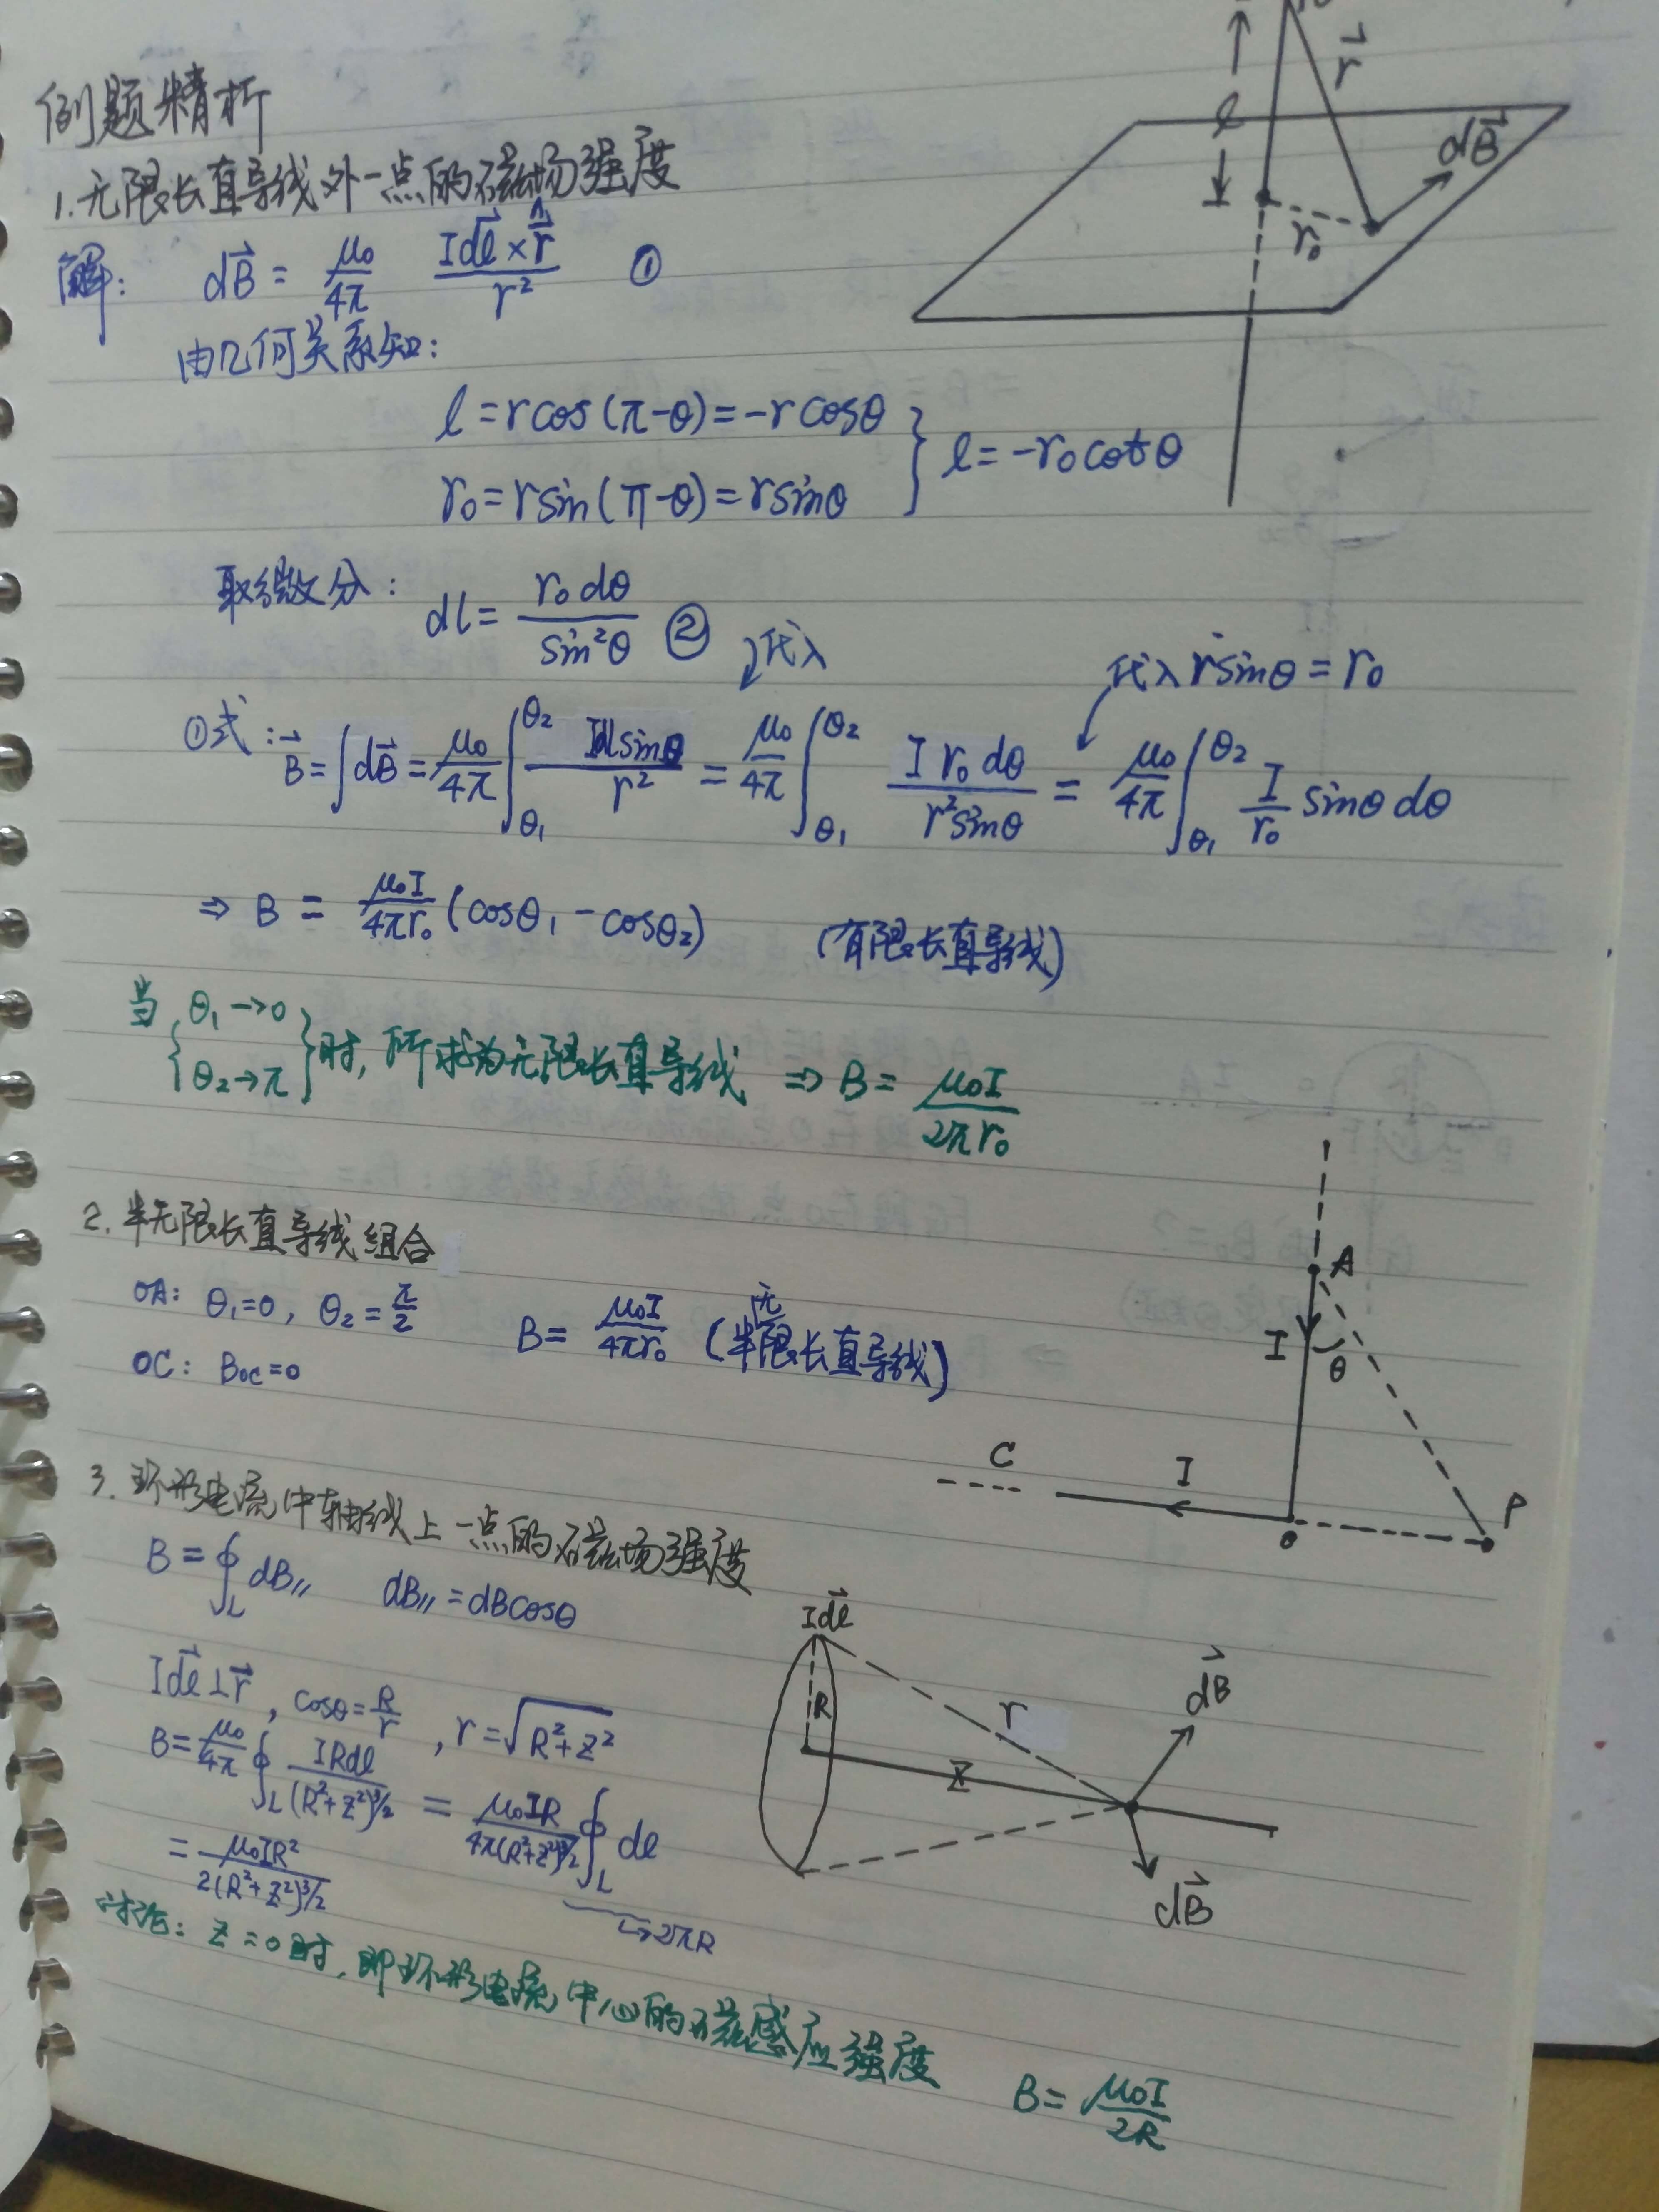 例题精析
1.无限长直导线外一点的磁场强度
解: dB⃗ = μ₀/4π Idl⃗×r̂/r² ①
由几何关系知:
l=rcos(π-θ)=-rcosθ
r₀=rsin(π-θ)=rsinθ } l=-r₀cotθ
取微分: dl= r₀dθ/sin²θ ② 代入
代入 rsinθ=r₀
①式: B⃗=∫dB⃗=μ₀/4π ∫_θ₁^θ₂ Idlsinθ/r² = μ₀/4π ∫_θ₁^θ₂ I r₀ dθ/r²sinθ = μ₀/4π ∫_θ₁^θ₂ I/r₀ sinθ dθ
⇒ B = μ₀I/4πr₀ (cosθ₁-cosθ₂) (有限长直导线)
当{θ₁→0
θ₂→π}时,所求为无限长直导线 ⇒ B= μ₀I/2πr₀
2.半无限长直导线组合
OA: θ₁=0, θ₂=π/2 B= μ₀I/4πr₀ (半无限长直导线)
OC: Boc=0
3.环形电流中轴线上一点的磁场强度
B=∮_L dB∥ dB∥=dBcosθ
Idl⃗⊥r⃗, cosθ=R/r, r=√(R²+Z²)
B=μ₀/4π ∮_L IRdl/(R²+Z²)^3/2 = μ₀IR/4π(R²+Z²)^3/2 ∮_L dl
→2πR
= μ₀IR²/2(R²+Z²)^3/2
讨论: Z=0时,即环形电流中心的磁感应强度 B= μ₀I/2R
r⃗
l
dB⃗
r₀
A
I
θ
C
I
O
P
Idl⃗
R
r
Z
dB⃗
dB⃗